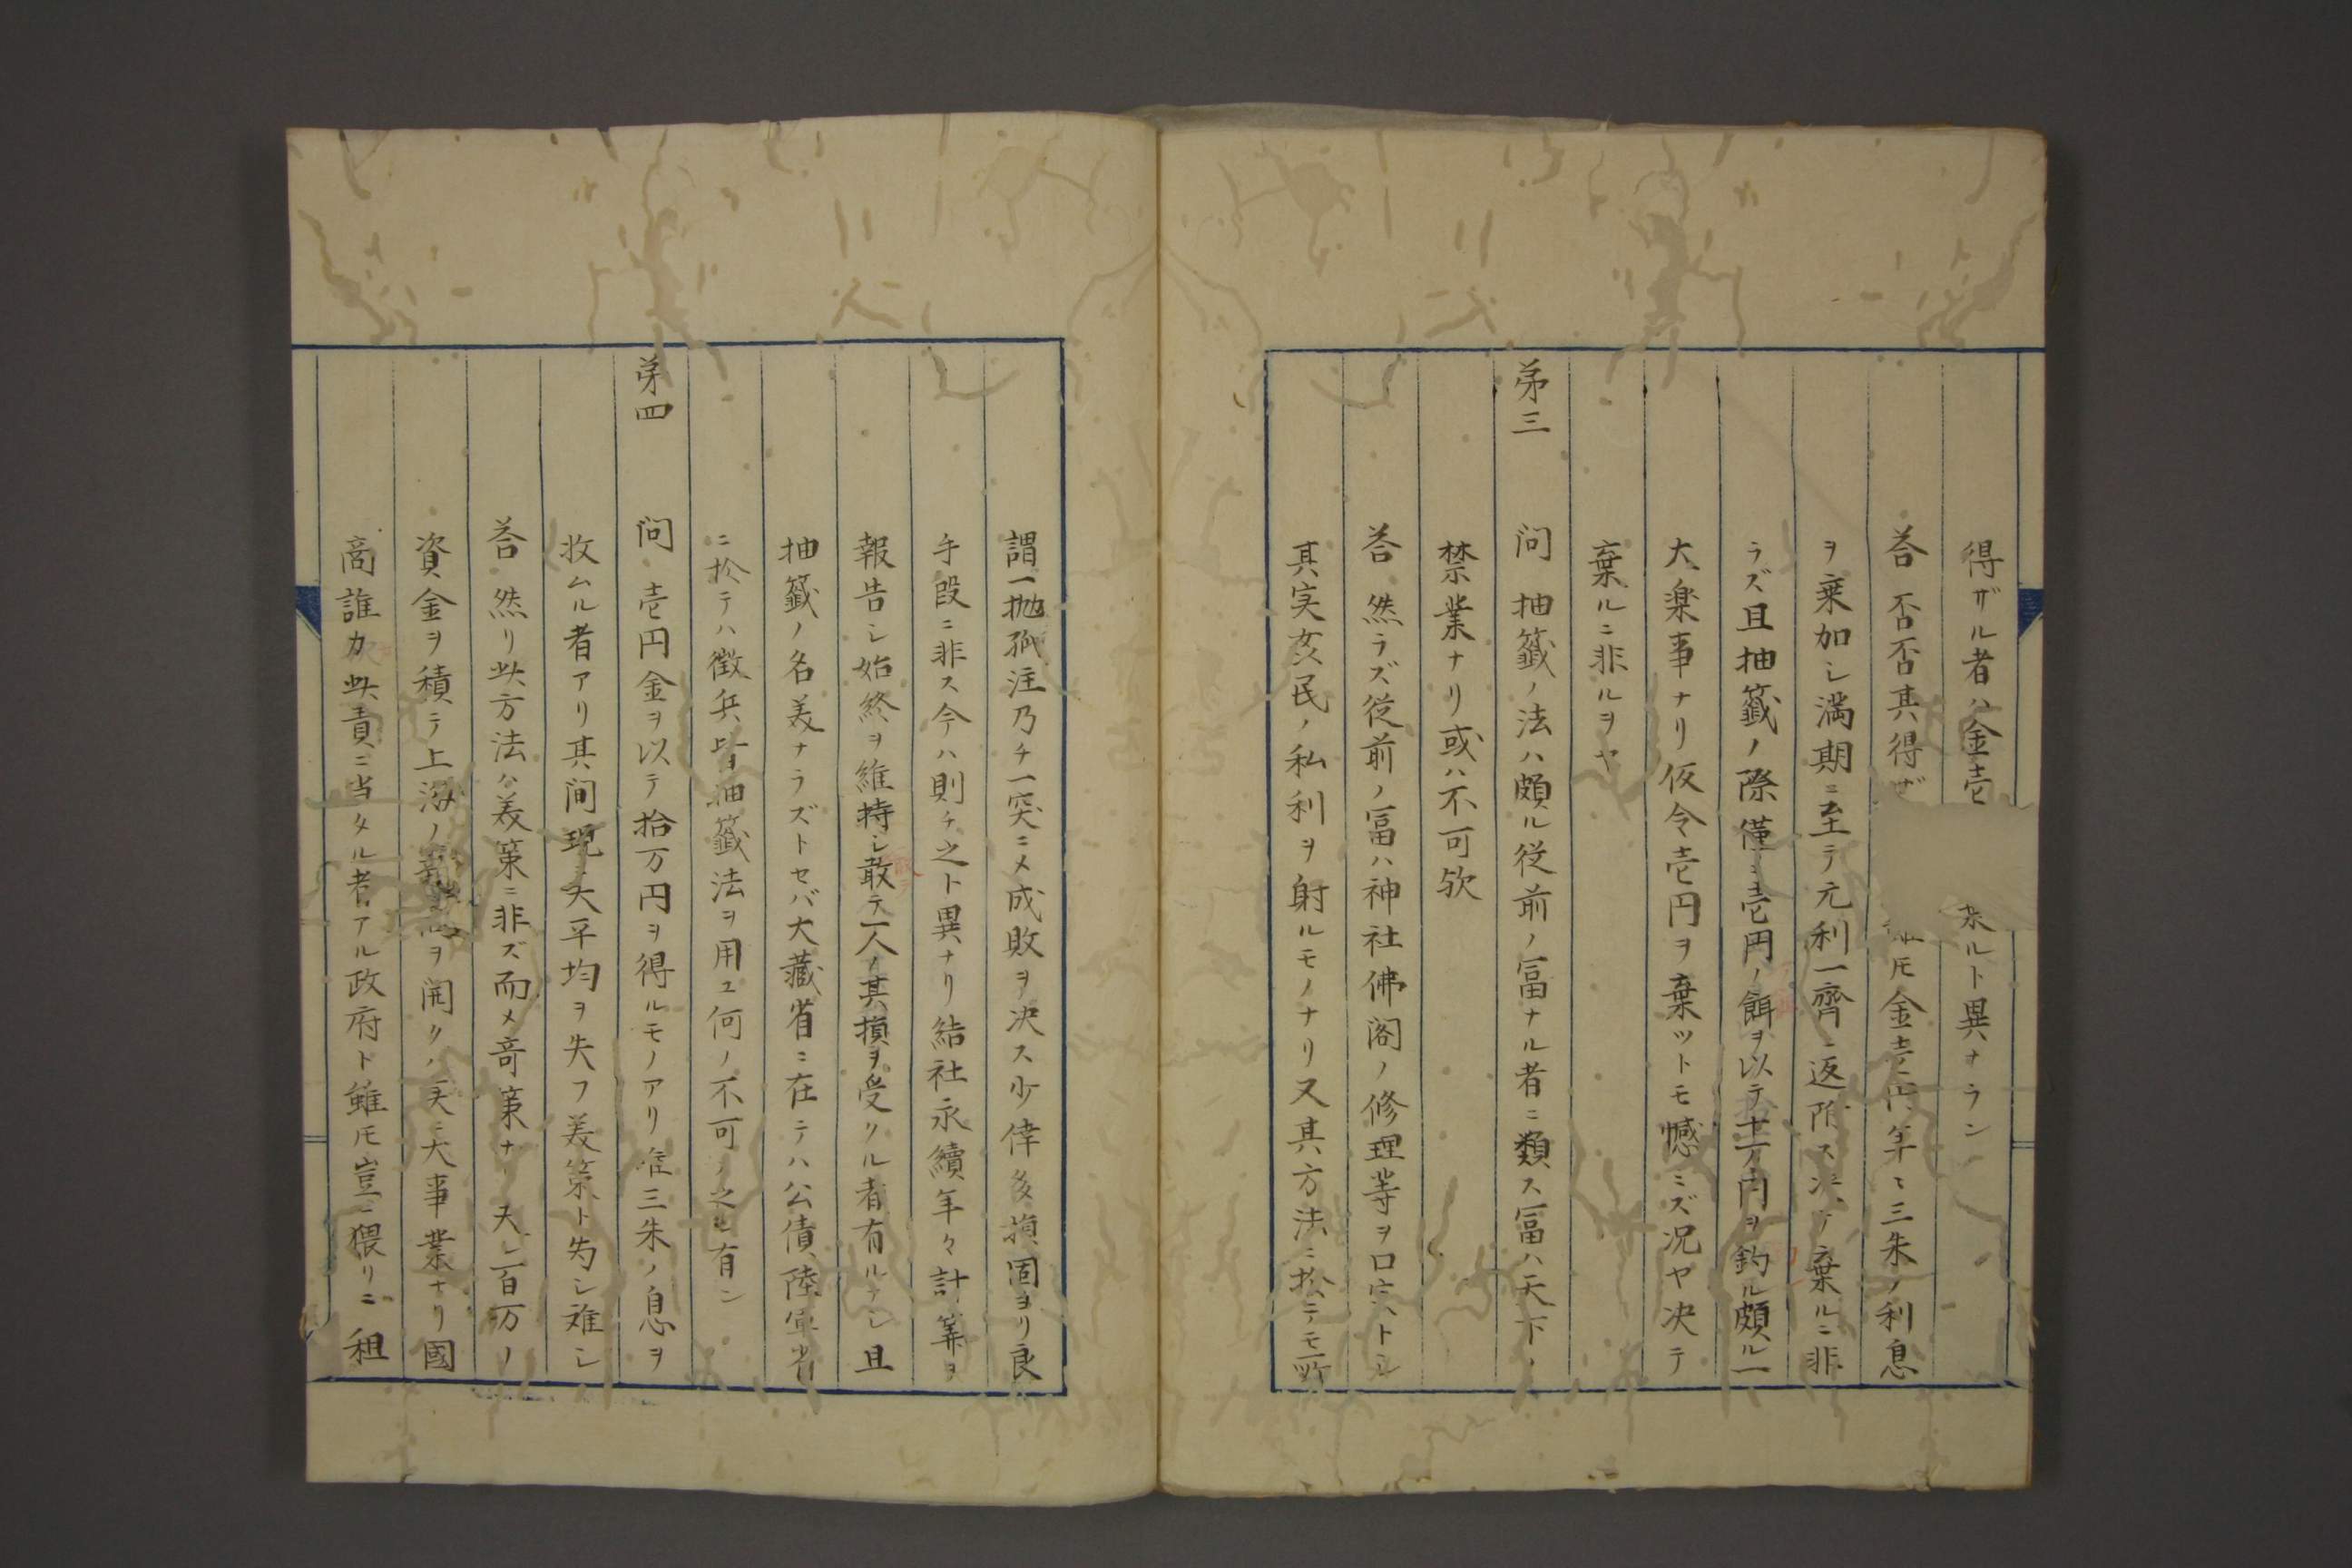 得ザル者ハ金壱 ルト異ナラン
答 否否其得ザ 𪜈金壱円年々三朱ノ利息
ヲ乗加シ満期ニ至テ元利一齊ニ返附ス决テ棄ルニ非
ラズ且抽籤ノ際僅ニ壱円ノ餌ヲ以テ十万円ヲ釣ル頗ル一
大楽事ナリ仮令壱円ヲ棄ツトモ憾ミズ况ヤ决テ
棄ルニ非ルヲヤ
苐三 问 抽籤ノ法ハ頗ル従前ノ冨ナル者ニ類ス冨ハ天下ノ
禁業ナリ或ハ不可欤
答 然ラズ従前ノ冨ハ神社佛閣ノ修理等ヲ口実トシ
其実奸民ノ私利ヲ射ルモノナリ又其方法ニ於テモ所
謂一抛孤注乃チ一突ニ〆成敗ヲ决ス少倖多損固ヨリ良
手段ニ非ス今ハ則チ之ト異ナリ結社永續年々計筭ヲ
報告シ始終ヲ維持シ敢テ一人ノ其損ヲ受クル者有ルナシ且
抽籤ノ名美ナラズトセバ大藏省ニ在テハ公債陸軍省
ニ於テハ徴兵皆抽籤法ヲ用ユ何ノ不可ノ之レ有ン
苐四 问 壱円金ヲ以テ拾万円ヲ得ルモノアリ唯三朱ノ息ヲ
收ムル者アリ其间現ニ大平均ヲ失フ美策ト为シ难シ
答 然リ此方法ハ美策ニ非ズ而〆竒策ナリ夫レ百万ノ
資金ヲ積テ上海ノ ヲ開クハ実ニ大事業ナリ國
商誰カ此責ニ当タル者アル政府ト雖𪜈豈ニ猥リニ租